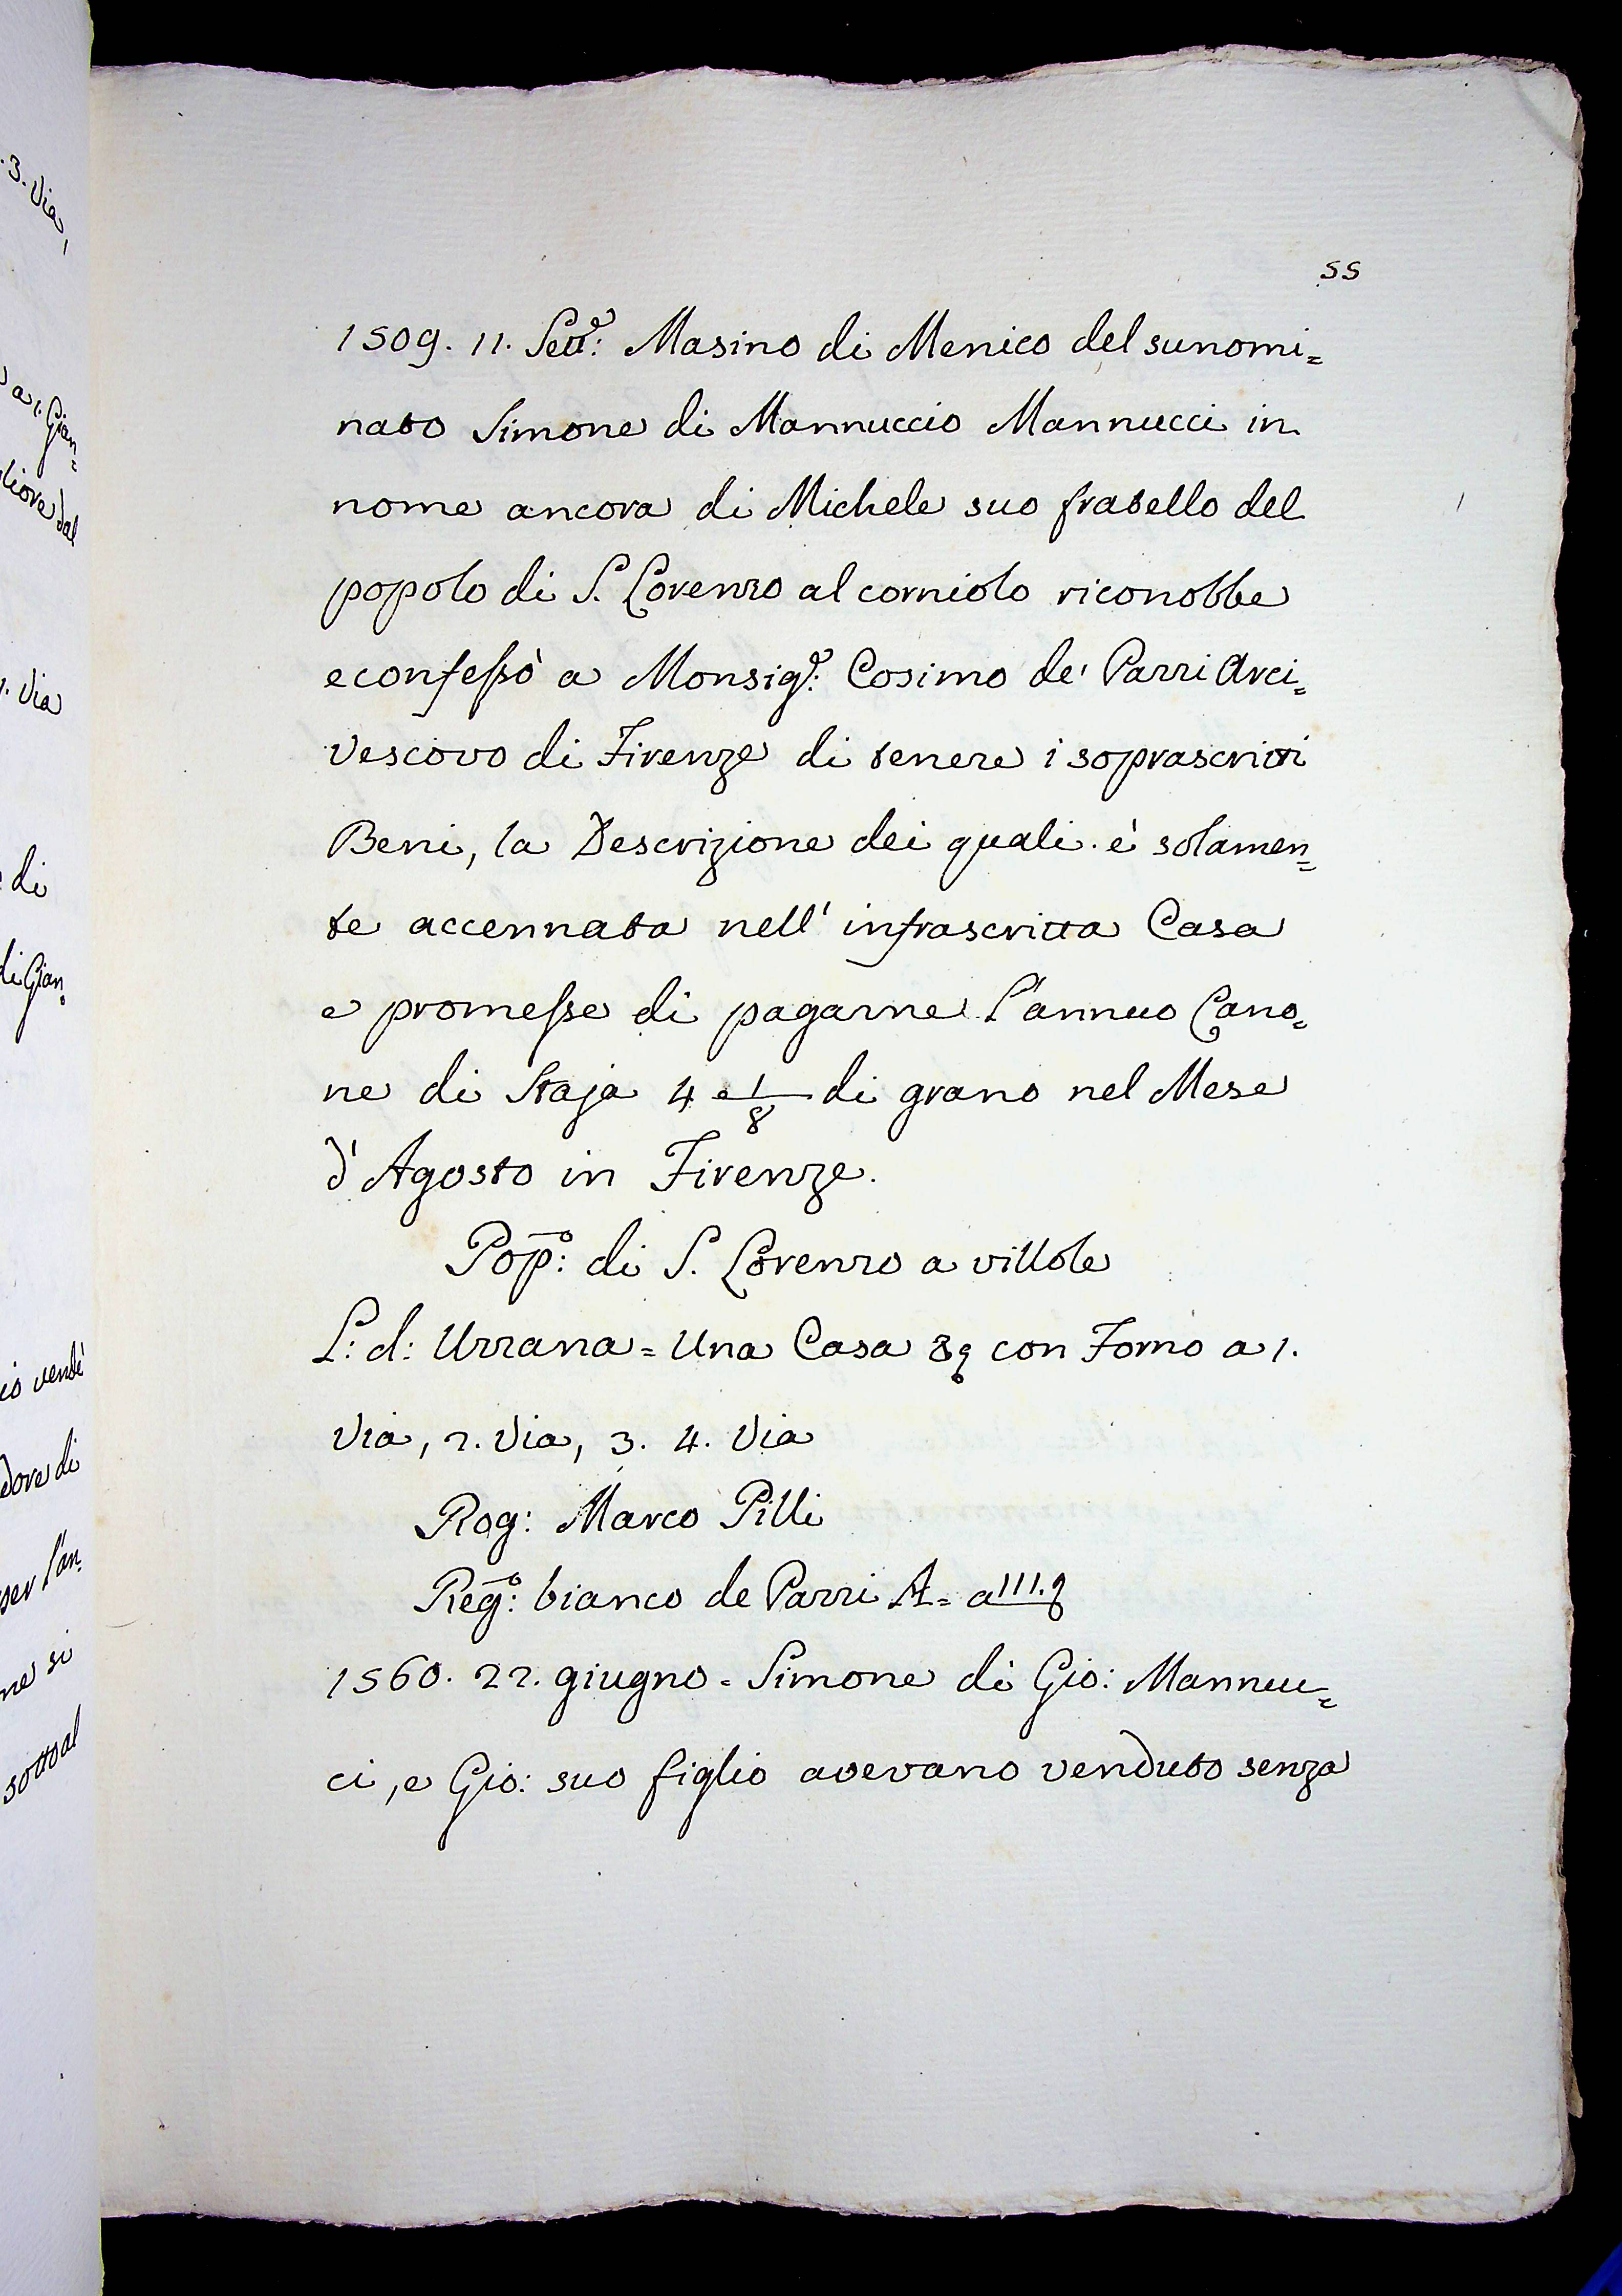 55
1509. 11. Sett.e: Masino di Menico del sunomi=
nato Simone di Mannuccio Mannucci in
nome ancora di Michele suo fratello del
popolo di S. Lorenzo al corniolo riconobbe
e confessò a Monsig.e: Cosimo de' Pazzi Arci=
vescovo di Firenze di tenere i soprascritti
Beni, la Descrizione dei quali è solamen=
te accennata nell' infrascritta Casa
e promesse di pagarne l'annuo Cano=
ne di Staja 4 e 1/8 di grano nel Mese
d'Agosto in Firenze.
Pop.o: di S. Lorenzo a villole
L: d: Uzzana = Una Casa con Forno a 1.
Via, 2. Via, 3. 4. Via
Rog: Marco Pilli
Reg.o: bianco de Pazzi A = a 111.
1560. 22. giugno = Simone di Gio: Mannuc=
ci, e Gio: suo figlio avevano venduto senza
3. Via,
a 1. Gian=
gliore dal
1. Via
di
di Gian=
io vendè
dore di
per l'an=
ne si
sotto al